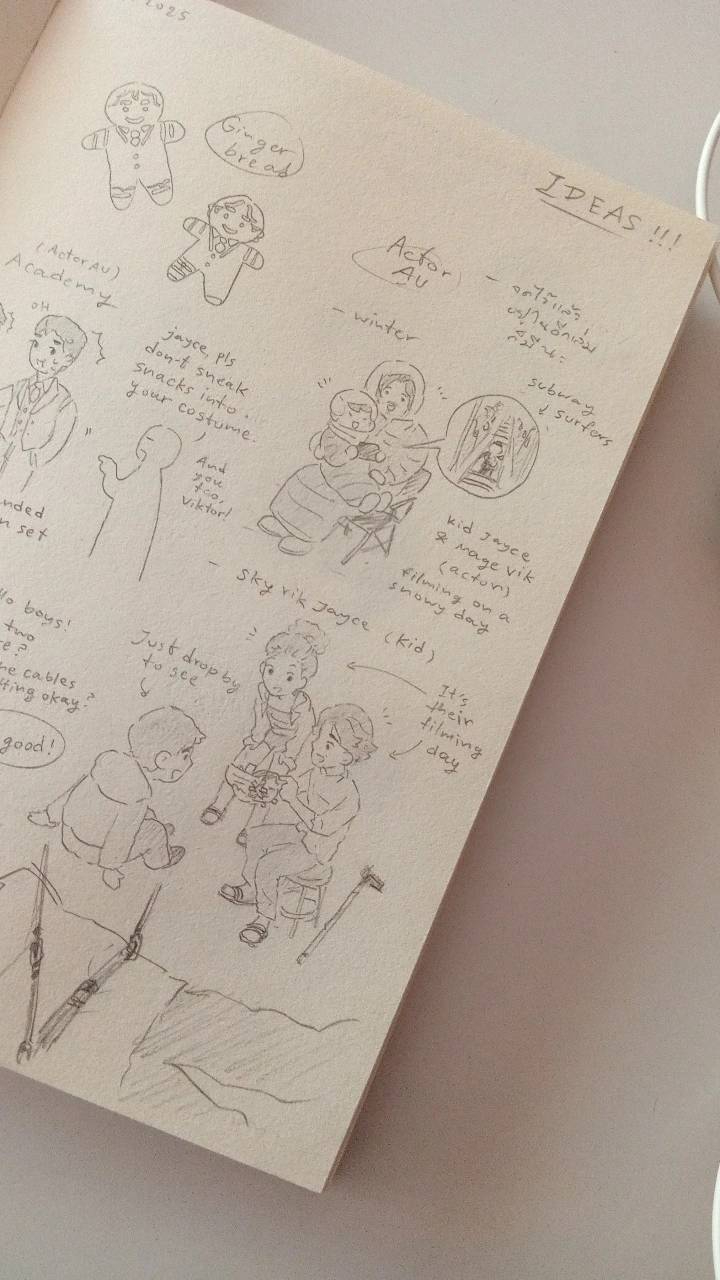 2025
Ginger
bread
IDEAS !!!
(Actor AU)
Academy
OH
Jayce, pls
don't sneak
snacks into
your costume.
And
you
too,
Viktor!
Actor
AU
- winter
subway
surfers
kid Jayce
& mage vik
(actor)
filming on a
snowy day
- sky vik Jayce (kid)
nded
n set
lo boys!
two
e?
he cables
ting okay?
good!
Just drop by
to see
It's
their
filming
day